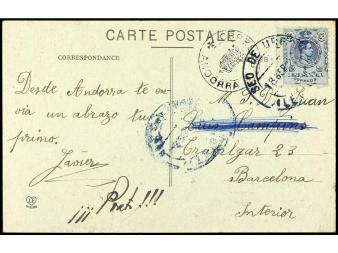 CARTE POSTALE
CORRESPONDANCE
ANDORRA
SEO DE URGEL
Desde Andorra te en-
vía un abrazo tu
primo.
Javier
¡¡¡ Prat!!!
M. S. Juan
Luis Campins
Trafalgar 23
Barcelona
Interior